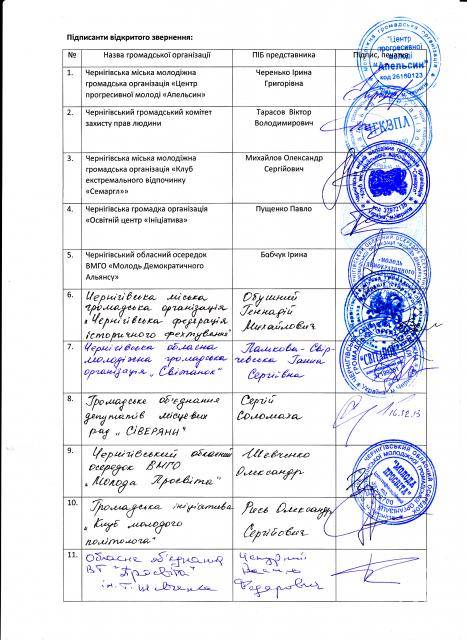 Підписанти відкритого звернення:
№ Назва громадської організації ПІБ представника Підпис, печатка
1. Чернігівська міська молодіжна Черенько Ірина
громадська організація «Центр Григорівна
прогресивної молоді «Апельсин»
"Центр
прогресивної
молоді
"Апельсин"
код 26160123
2. Чернігівський громадський комітет Тарасов Віктор
захисту прав людини Володимирович
ЧГКЗПЛ
3. Чернігівська міська молодіжна Михайлов Олександр
громадська організація «Клуб Сергійович
екстремального відпочинку
«Семаргл»»
4. Чернігівська громадка організація Пущенко Павло
«Освітній центр «Ініціатива»
5. Чернігівський обласний осередок Бабчук Ірина
ВМГО «Молодь Демократичного
Альянсу»
6. Чернігівська міська Обушний
громадська організація Геннадій
"Чернігівська федерація Михайлович
історичного фехтування"
7. Чернігівська обласна
молодіжна громадська
організація "Світанок" Сергіївна
"СВІТАНОК"
8. Громадське об'єднання Сергій
депутатів місцевих Соломаха
рад "СІВЕРЯНИ"
16.12.13
9. Чернігівський обласний Шевченко
осередок ВМГО Олександр
"Молода Просвіта"
"МОЛОДА
ПРОСВІТА"
10. Громадська ініціатива Олександр
"Клуб молодого Сергійович
політолога"
11. Обласне об'єднання
ВТ "Просвіта"
ім. Т. Шевченка Федорович